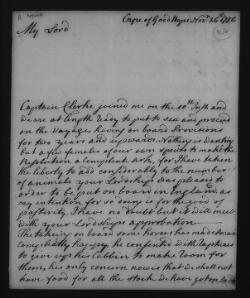 Cape of Good Hope Novr 26th 1776
My Lord
Captain Clerke joined me on the 10th Inst. and
we are at length ready to put to sea and proceed
on the Voyage having on board Provisions
for two years and upwards. Nothing is wanting
but a few females of our own species to make the
Resolution a compleat ark, for I have taken
the liberty to add considerably to the number
of animals your Lordship was pleased to
order to be put on board in England; as
my intention for so doing is for the good of
posterity, I have no doubt but it will meet
with your Lordships approbation.
The taking on board some horses has made Omai
compleatly happy, he consented with raptures
to give up his Cabbin to make room for
them, his only concern now is that we shall not
have food for all the stock we have got on board